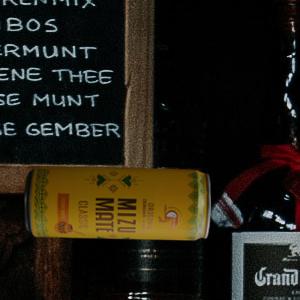 RENMIX
BOS
ERMUNT
ENE THEE
SE MUNT
SE GEMBER
ORIGINAL
MIZU
MATE
CLASSIC
Grand